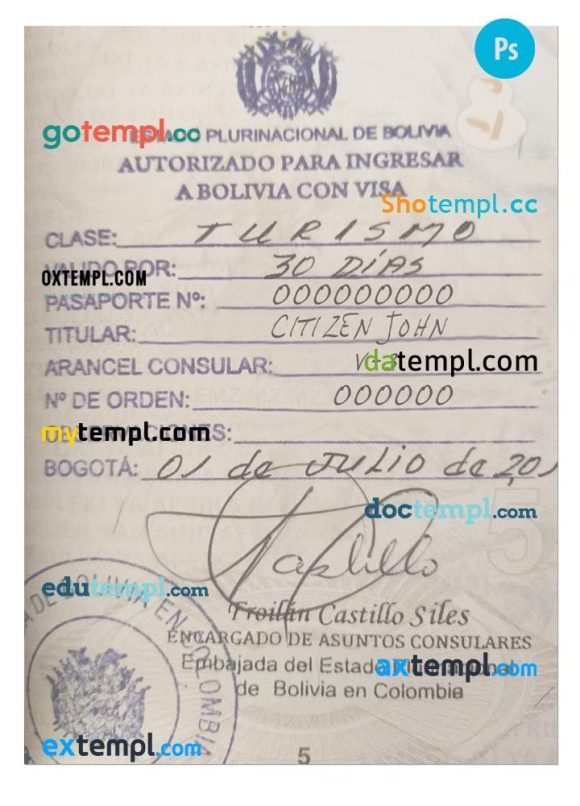 Ps
gotempl.co
PLURINACIONAL DE BOLIVIA
AUTORIZADO PARA INGRESAR
A BOLIVIA CON VISA
Shotempl.cc
CLASE: TURISMO
VALIDO POR: 30 DÍAS
OXTEMPL.COM
PASAPORTE Nº: 000000000
TITULAR: CITIZEN JOHN
ARANCEL CONSULAR:
datempl.com
Nº DE ORDEN: 000000
mytempl.com
BOGOTÁ: 01 de JULIO de 201
doctempl.com
Castillo
edutempl.com
Froilán Castillo Siles
ENCARGADO DE ASUNTOS CONSULARES
Embajada del Estado
axtempl.com
de Bolivia en Colombia
DE BOLIVIA EN COLOMBIA
extempl.com
5